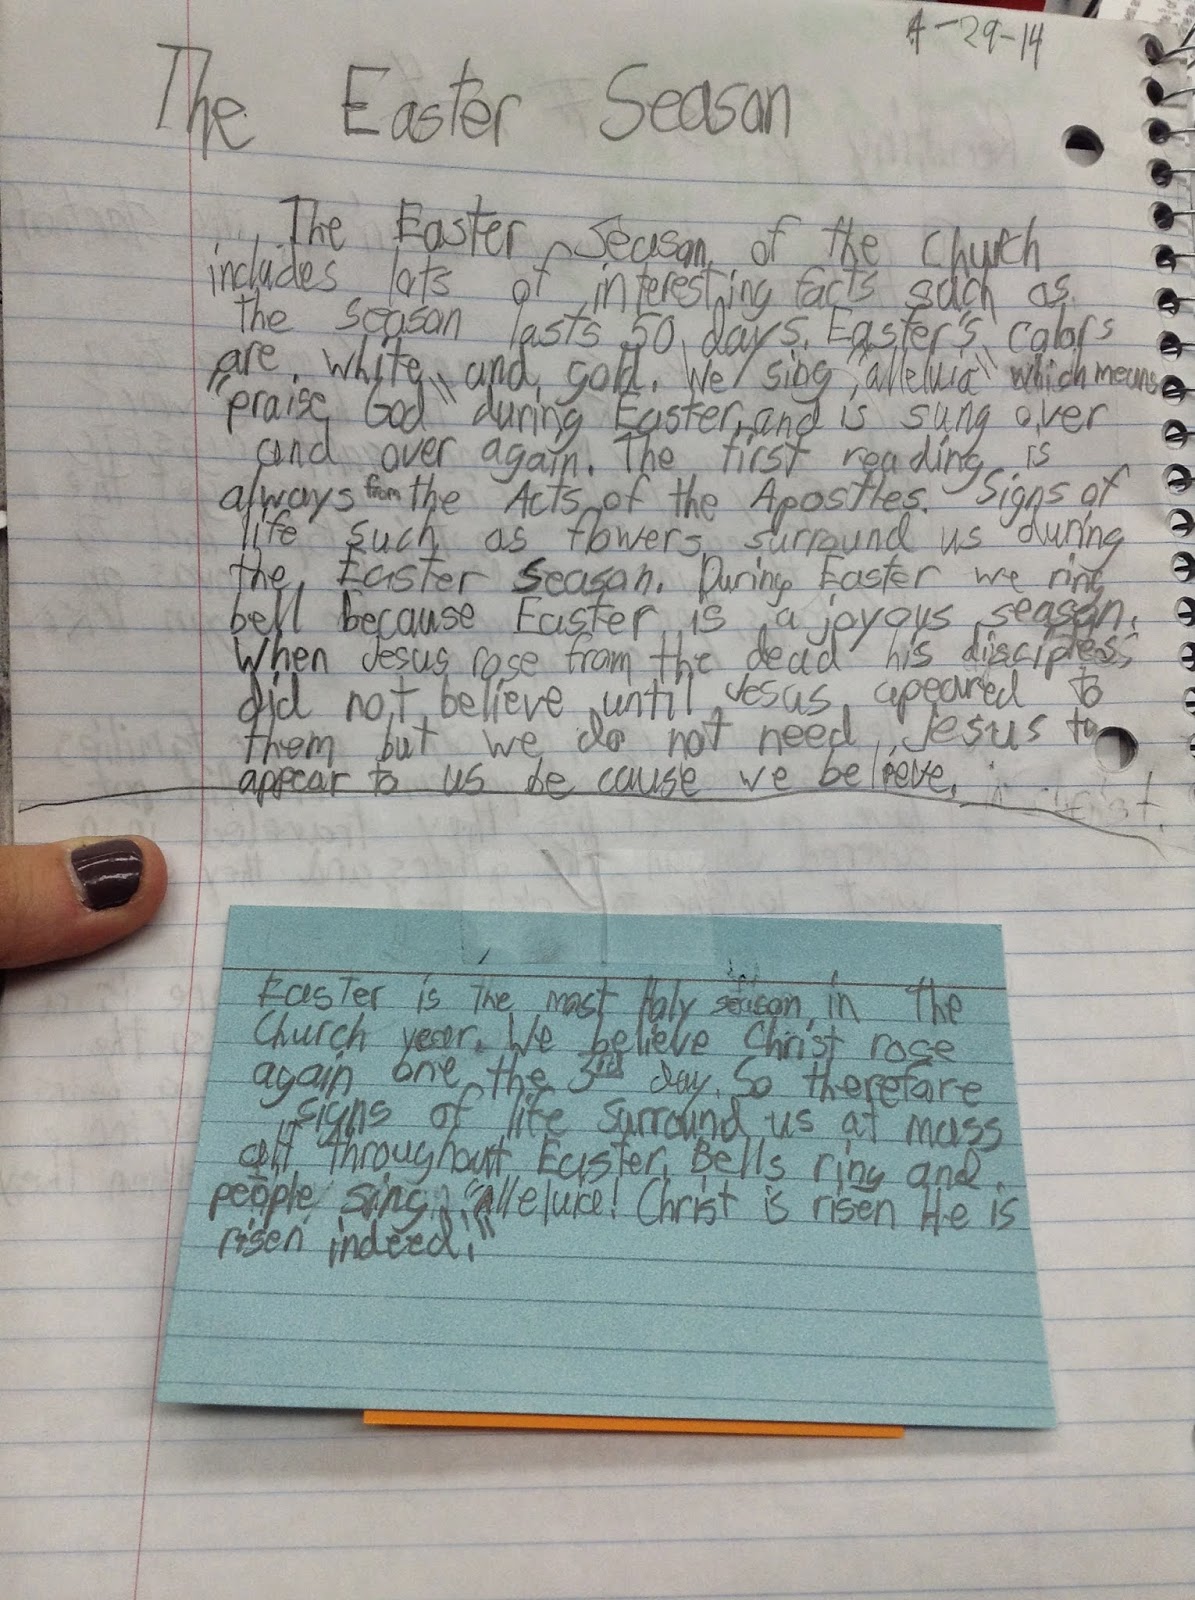 4-29-14
The Easter Season
The Easter Season of the Church
includes lots of interesting facts such as
the season lasts 50 days. Easter's colors
are white and gold. We sing "alleluia" which means
"praise God" during Easter, and is sung over
and over again. The first reading is
always from the Acts of the Apostles. Signs of
life such as flowers surround us during
the Easter Season. During Easter we ring
bell because Easter is a joyous season.
When Jesus rose from the dead his disciples
did not believe until Jesus apeared to
them but we do not need Jesus to
appear to us be cause we believe.
Easter is the most Holy season in the
Church year. We believe Christ rose
again one the 3rd day. So therefore
signs of life surround us at mass
all throughout Easter. Bells ring and
people sing, "Alleluia! Christ is risen He is
risen indeed!"